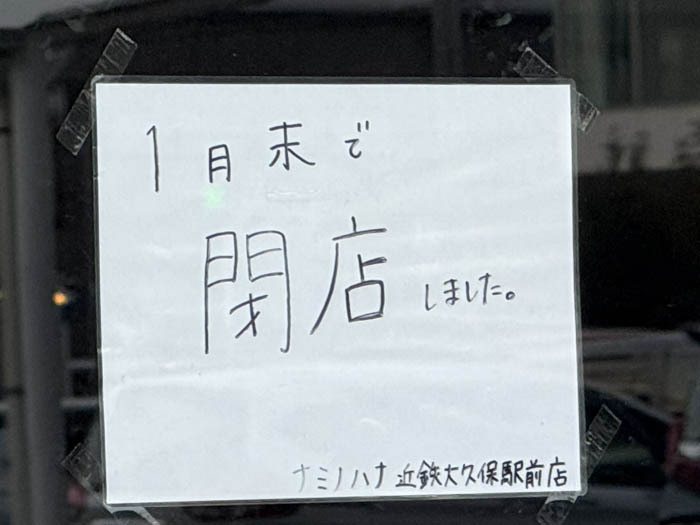 1月末で
閉店しました。
ナミノハナ近鉄大久保駅前店